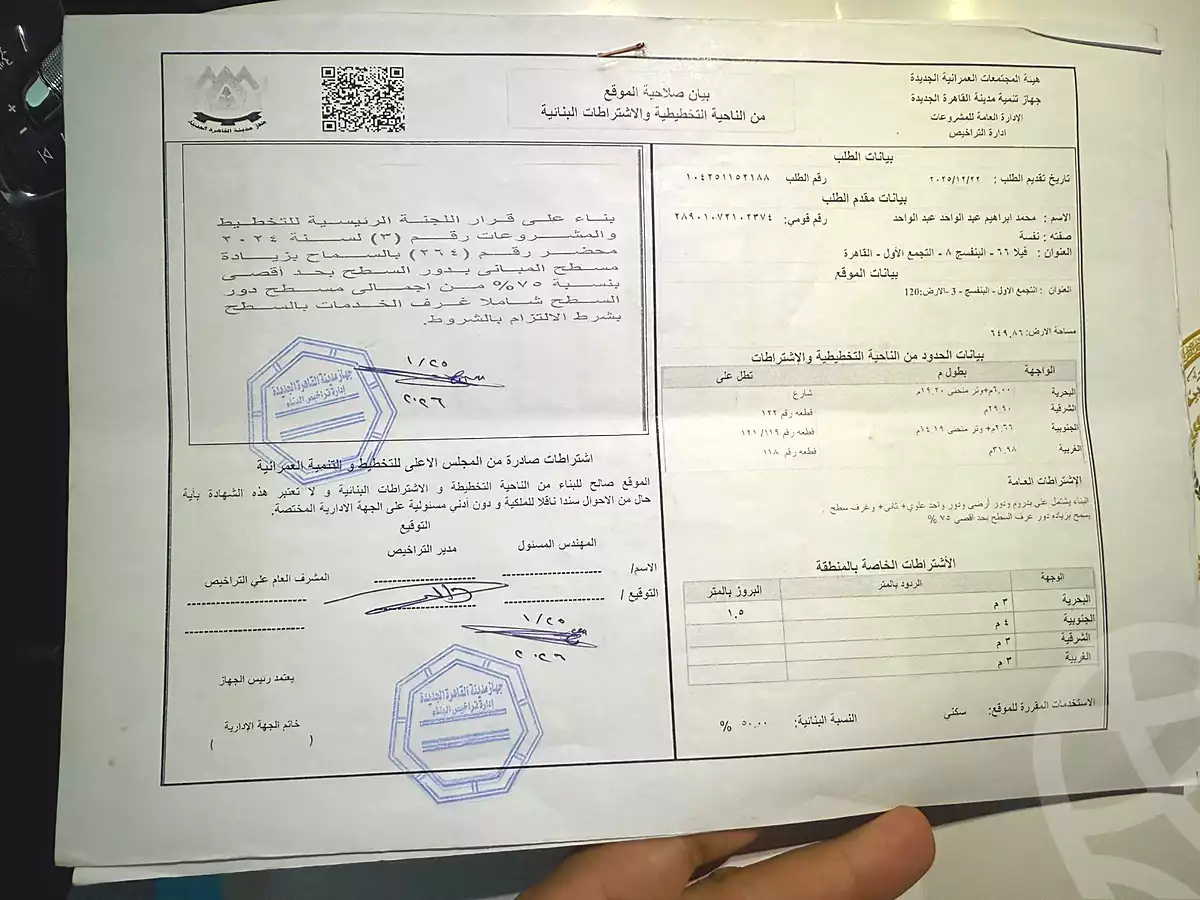 هيئة المجتمعات العمرانية الجديدة
جهاز تنمية مدينة القاهرة الجديدة
الإدارة العامة للمشروعات
ادارة التراخيص
بيان صلاحية الموقع
من الناحية التخطيطية والاشتراطات البنائية
جهاز مدينة القاهرة الجديدة
بيانات الطلب
تاريخ تقديم الطلب : ٢٠٢٥/١٢/٢٢ رقم الطلب ١٠٤٢٥١١٥٢١٨٨
بيانات مقدم الطلب
الاسم : محمد ابراهيم عبد الواحد عبد الواحد رقم قومي: ٢٨٩٠١٠٧٢١٠٢٣٧٤
صفته : نفسة
العنوان : فيلا ٦٦ - البنفسج ٨ - التجمع الأول - القاهرة
بيانات الموقع
العنوان : التجمع الاول - البنفسج - 3 -الارض:120
مساحة الارض: ٦٤٩,٨٦
بيانات الحدود من الناحية التخطيطية والإشتراطات
الواجهة بطول م تطل على
البحرية ٦,٠٠م+وتر منحنى ١٩,٢٠م شارع
الشرقية ٢٩,٩٠م قطعه رقم ١٢٢
الجنوبية ٢,٦٦م+ وتر منحنى ١٤,١٩م قطعه رقم ١١٩/ ١٢١
الغربية ٣١,٩٨م قطعه رقم ١١٨
الإشتراطات العامة
البناء يشتمل على بدروم ودور أرضى ودور واحد علوي+ ثانى+ وغرف سطح .
يسمح بزياده دور غرف السطح بحد اقصى ٧٥ %
الأشتراطات الخاصة بالمنطقة
الوجهة الردود بالمتر البروز بالمتر
البحرية ٣ م ١,٥
الجنوبية ٤ م
الشرقية ٣ م
الغربية ٣ م
الاستخدمات المقررة للموقع: سكني النسبة البنائية: ٥٠,٠٠ %
بناء على قرار اللجنة الرئيسية للتخطيط
والمشروعات رقم (٣) لسنة ٢٠٢٤
محضر رقم (٢٦٤) بالسماح بزيادة
مسطح المبانى بدور السطح بحد أقصى
بنسبة ٧٥% من اجمالى مسطح دور
السطح شاملا غرف الخدمات بالسطح
بشرط الالتزام بالشروط.
١/٢٥
٢٠٢٦
جهاز مدينة القاهرة الجديدة
إدارة تراخيص البناء
اشتراطات صادرة من المجلس الاعلى للتخطيط و التنمية العمرانية
الموقع صالح للبناء من الناحية التخطيطة و الاشتراطات البنائية و لا تعتبر هذه الشهادة بأية
حال من الاحوال سندا ناقلا للملكية و دون أدني مسئولية على الجهة الادارية المختصة.
التوقيع
المهندس المسئول مدير التراخيص المشرف العام علي التراخيص
الاسم/
التوقيع /
١/٢٥
٢٠٢٦
يعتمد رئيس الجهاز
خاتم الجهة الإدارية
( )
جهاز مدينة القاهرة الجديدة
إدارة تراخيص البناء